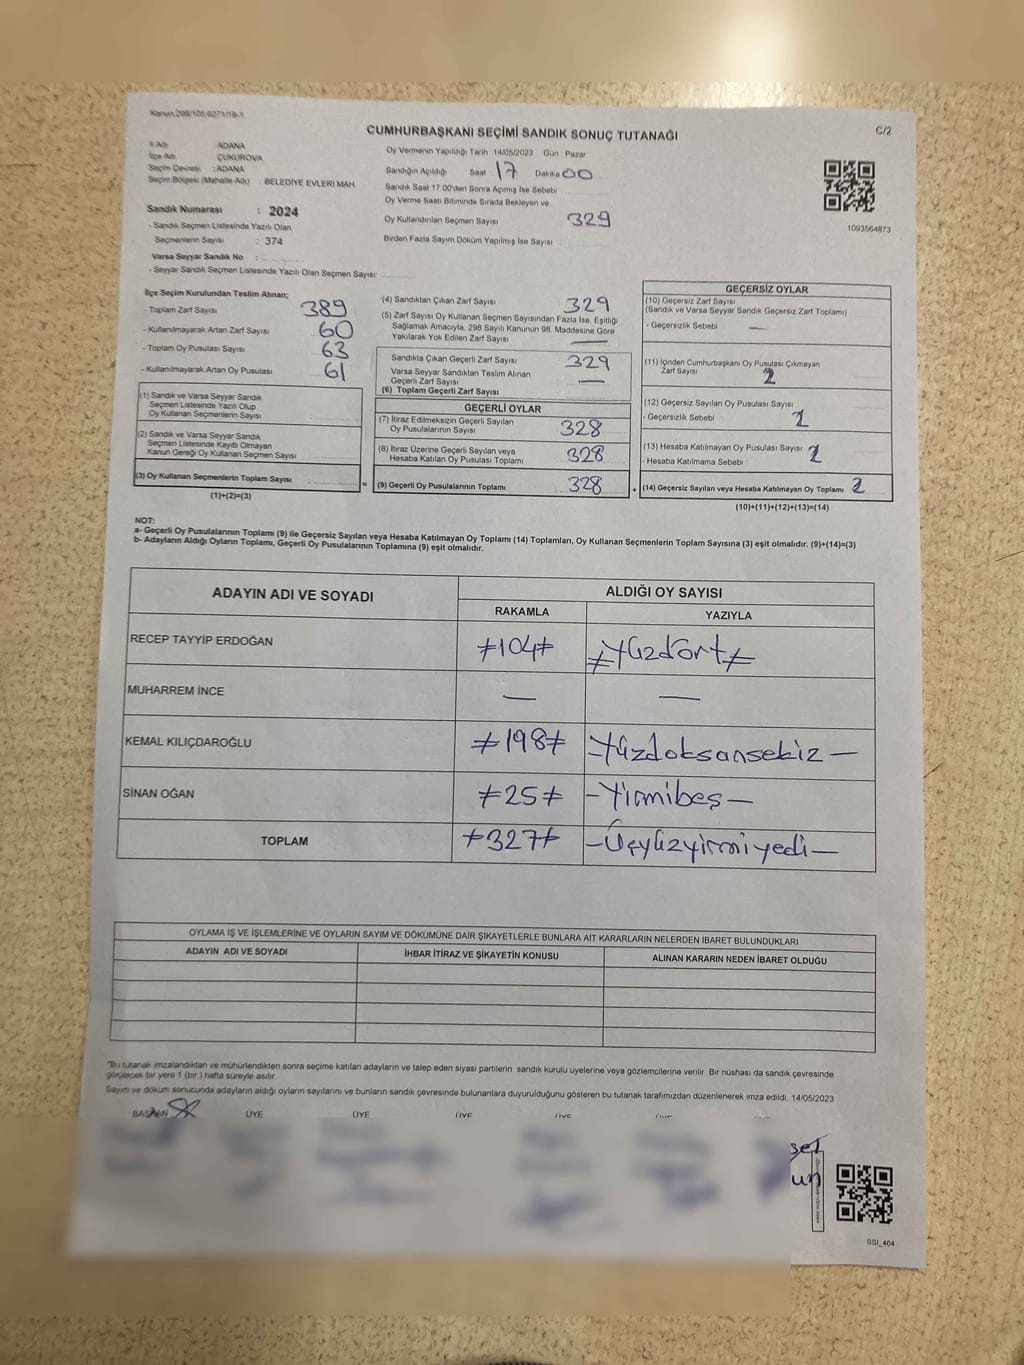 Kanun:298/105;6271/18-1
CUMHURBAŞKANI SEÇİMİ SANDIK SONUÇ TUTANAĞI
C/2
İl Adı : ADANA
İlçe Adı : ÇUKUROVA
Seçim Çevresi : ADANA
Seçim Bölgesi (Mahalle Adı) : BELEDİYE EVLERİ MAH
Oy Vermenin Yapıldığı Tarih 14/05/2023 Gün Pazar
Sandığın Açıldığı Saat 17 Dakika 00
Sandık Saat 17:00'den Sonra Açımış İse Sebebi
Oy Verme Saati Bitiminde Sırada Bekleyen ve
Oy Kullandırılan Seçmen Sayısı 329
Birden Fazla Sayım Döküm Yapılmış İse Sayısı :
1093564873
Sandık Numarası : 2024
- Sandık Seçmen Listesinde Yazılı Olan
Seçmenlerin Sayısı : 374
Varsa Seyyar Sandık No :
- Seyyar Sandık Seçmen Listesinde Yazılı Olan Seçmen Sayısı:
İlçe Seçim Kurulundan Teslim Alınan;
- Toplam Zarf Sayısı 389
- Kullanılmayarak Artan Zarf Sayısı 60
- Toplam Oy Pusulası Sayısı 63
- Kullanılmayarak Artan Oy Pusulası 61
(1) Sandık ve Varsa Seyyar Sandık
Seçmen Listesinde Yazılı Olup
Oy Kullanan Seçmenlerin Sayısı
(2) Sandık ve Varsa Seyyar Sandık
Seçmen Listesinde Kayıtlı Olmayan
Kanun Gereği Oy Kullanan Seçmen Sayısı
(3) Oy Kullanan Seçmenlerin Toplam Sayısı =
(1)+(2)=(3)
(4) Sandıktan Çıkan Zarf Sayısı 329
(5) Zarf Sayısı Oy Kullanan Seçmen Sayısından Fazla İse, Eşitliği
Sağlamak Amacıyla, 298 Sayılı Kanunun 98. Maddesine Göre
Yakılarak Yok Edilen Zarf Sayısı —
Sandıkta Çıkan Geçerli Zarf Sayısı 329
Varsa Seyyar Sandıktan Teslim Alınan
Geçerli Zarf Sayısı —
(6) Toplam Geçerli Zarf Sayısı
GEÇERLİ OYLAR
(7) İtiraz Edilmeksizin Geçerli Sayılan
Oy Pusulalarının Sayısı 328
(8) İtiraz Üzerine Geçerli Sayılan veya
Hesaba Katılan Oy Pusulası Toplamı 328
(9) Geçerli Oy Pusulalarının Toplamı 328 +
GEÇERSİZ OYLAR
(10) Geçersiz Zarf Sayısı
(Sandık ve Varsa Seyyar Sandık Geçersiz Zarf Toplamı)
- Geçersizlik Sebebi —
(11) İçinden Cumhurbaşkanı Oy Pusulası Çıkmayan
Zarf Sayısı
(12) Geçersiz Sayılan Oy Pusulası Sayısı
- Geçersizlik Sebebi
(13) Hesaba Katılmayan Oy Pusulası Sayısı
- Hesaba Katılmama Sebebi
(14) Geçersiz Sayılan veya Hesaba Katılmayan Oy Toplamı
(10)+(11)+(12)+(13)=(14)
NOT:
a- Geçerli Oy Pusulalarının Toplamı (9) ile Geçersiz Sayılan veya Hesaba Katılmayan Oy Toplamı (14) Toplamları, Oy Kullanan Seçmenlerin Toplam Sayısına (3) eşit olmalıdır. (9)+(14)=(3)
b- Adayların Aldığı Oyların Toplamı, Geçerli Oy Pusulalarının Toplamına (9) eşit olmalıdır.
ADAYIN ADI VE SOYADI
ALDIĞI OY SAYISI
RAKAMLA YAZIYLA
RECEP TAYYİP ERDOĞAN ≠104≠ ≠Yüzdört≠
MUHARREM İNCE — —
KEMAL KILIÇDAROĞLU ≠198≠ —Yüzdoksansekiz—
SİNAN OĞAN ≠25≠ —Yirmibeş—
TOPLAM ≠327≠ —Üçyüzyirmiyedi—
OYLAMA İŞ VE İŞLEMLERİNE VE OYLARIN SAYIM VE DÖKÜMÜNE DAİR ŞİKAYETLERLE BUNLARA AİT KARARLARIN NELERDEN İBARET BULUNDUKLARI
ADAYIN ADI VE SOYADI İHBAR İTİRAZ VE ŞİKAYETİN KONUSU ALINAN KARARIN NEDEN İBARET OLDUĞU
*Bu tutanak imzalandıktan ve mühürlendikten sonra seçime katılan adayların ve talep eden siyasi partilerin sandık kurulu üyelerine veya gözlemcilerine verilir. Bir nüshası da sandık çevresinde
görülecek bir yere 1 (bir ) hafta süreyle asılır.
Sayım ve döküm sonucunda adayların aldığı oyların sayılarını ve bunların sandık çevresinde bulunanlara duyurulduğunu gösteren bu tutanak tarafımızdan düzenlenerek imza edildi. 14/05/2023
BAŞKAN ÜYE ÜYE ÜYE ÜYE ÜYE
SSI_404